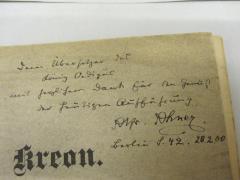 Dem Übersetzer des
König Oedipus
mit herzlichem Dank für den Genuß
der heutigen Aufführung.
Berlin S. 42. 28.2.00
Kreon.